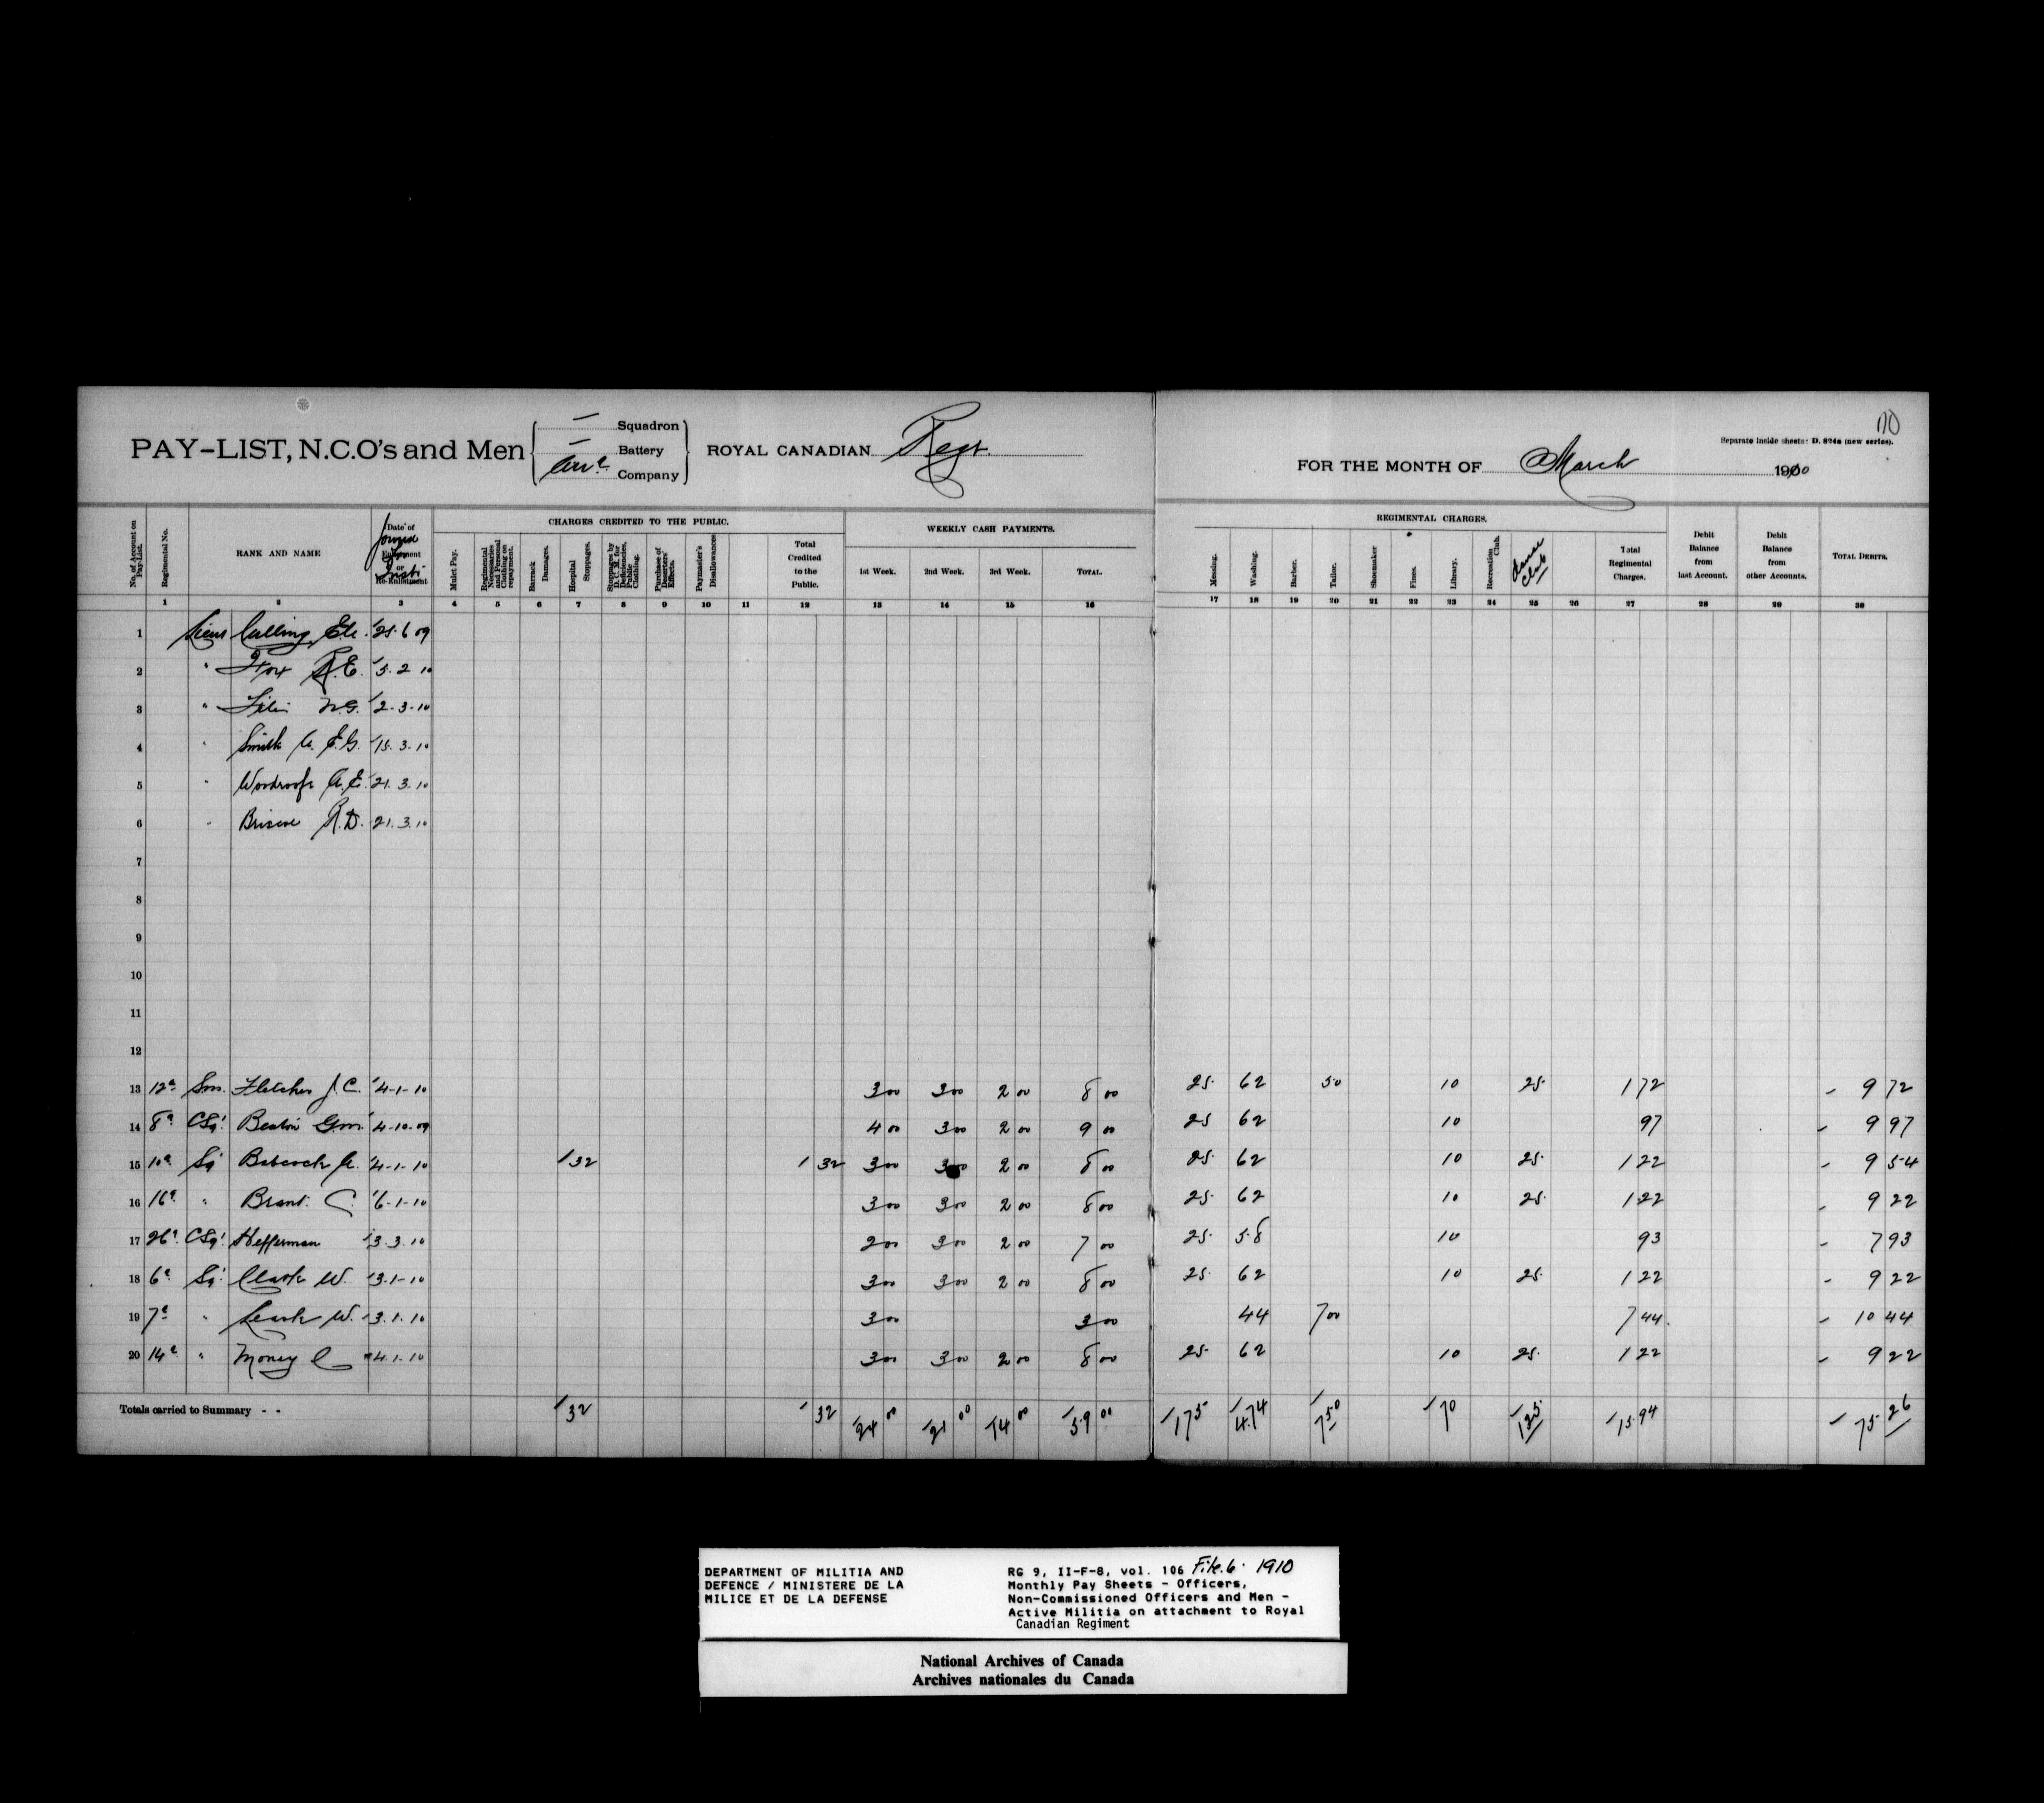 170
Separate inside sheets: D. 824a (new series).
PAY-LIST, N.C.O's and Men { — Squadron — Battery Company } ROYAL CANADIAN Regt.
FOR THE MONTH OF March 1910
No. of Account on Pay-List. Regimental No. RANK AND NAME Date of Joined Enlistment or Re-Enlistment
CHARGES CREDITED TO THE PUBLIC.
Mulct Pay. Regimental Necessaries and Personal Clothing on repayment. Barrack Damages. Hospital Stoppages. Stoppages by D.C.M. for Deficiencies, Public Clothing. Purchase of Deserters' Effects. Paymaster's Disallowances Total Credited to the Public.
WEEKLY CASH PAYMENTS.
1st Week. 2nd Week. 3rd Week. TOTAL.
REGIMENTAL CHARGES.
Messing. Washing. Barber. Tailor. Shoemaker Fines. Library. Recreation Club. Dance Club Total Regimental Charges.
Debit Balance from last Account. Debit Balance from other Accounts. TOTAL DEBITS.
1 2 3 4 5 6 7 8 9 10 11 12 13 14 15 16 17 18 19 20 21 22 23 24 25 26 27 28 29 30
1 Lieut Culling 25.6 09
2 " Fox R.E. 5.2 10
3 " 2-3-10
4 " Smith E.G. 15.3.10
5 " Woodroofe A.E. 21.3.10
6 " Briscoe R.D. 21.3.10
7
8
9
10
11
12
13 12a Fletcher J.C. 4-1-10 3 00 3 00 2 00 8 00 25 62 50 10 25 1 72 9 72
14 8a Beaton 4-10-09 4 00 3 00 2 00 9 00 25 62 10 97 9 97
15 10a Babcock A. 4-1-10 1 32 1 32 3 00 3 00 2 00 8 00 25 62 10 25 1 22 9 54
16 16a " Brant C 6-1-10 3 00 3 00 2 00 8 00 25 62 10 25 1 22 9 22
17 26a Hefferman 3.3.10 2 00 3 00 2 00 7 00 25 58 10 93 7 93
18 6a Clark W. 3.1-10 3 00 3 00 2 00 8 00 25 62 10 25 1 22 9 22
19 7a " Leask W. 3.1.10 3 00 3 00 44 7 00 7 44 10 44
20 14a " Money C 4.1-10 3 00 3 00 2 00 8 00 25 62 10 25 1 22 9 22
Totals carried to Summary - - 1 32 1 32 24 00 21 00 14 00 59 00 1 75 4.74 7 50 70 1 25 15.94 75 26
DEPARTMENT OF MILITIA AND
DEFENCE / MINISTERE DE LA
MILICE ET DE LA DEFENSE
RG 9, II-F-8, vol. 106 File.6. 1910
Monthly Pay Sheets - Officers,
Non-Commissioned Officers and Men -
Active Militia on attachment to Royal
Canadian Regiment
National Archives of Canada
Archives nationales du Canada